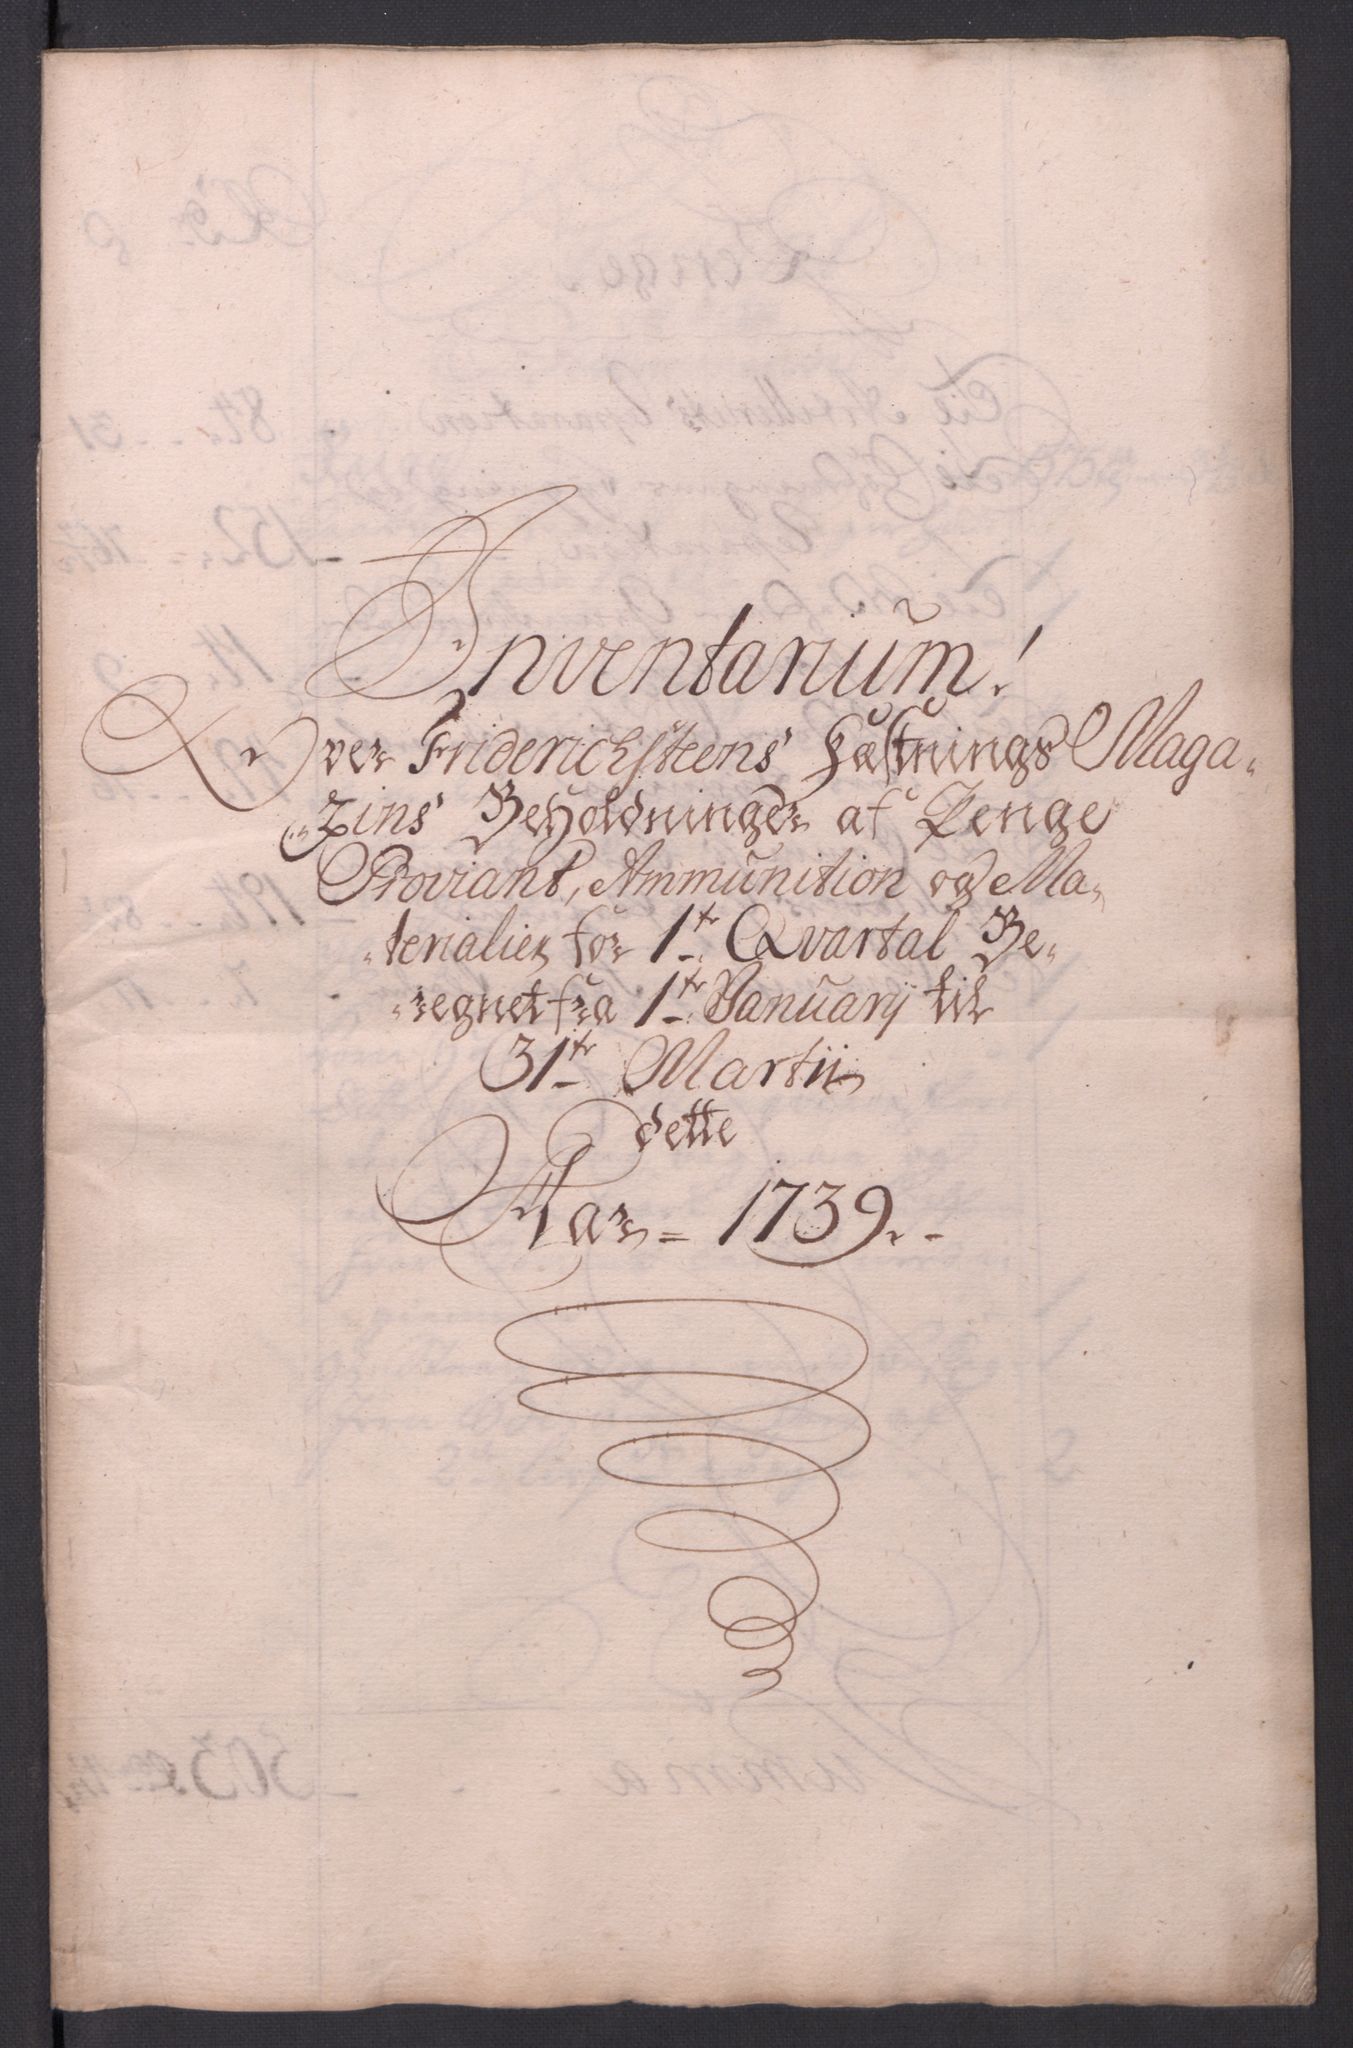 Inventarium!
Over Friderichsteens Fæstnings Maga„
„zins Beholdninger af Penge
Proviant, Ammunition og Ma„
„terialier for 1te Qvartal Be„
„regnet fra 1te Januarij til
31te Martii
dette
Aar = 1739.-